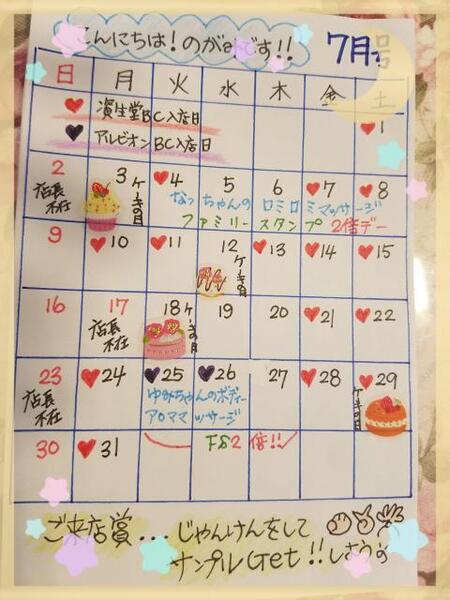 こんにちは!のがみです!!
7月号
日 月 火 水 木 金 土
♥ 資生堂BC入店日
♥ アルビオンBC入店日
♥1
2 3 ♥4 5 6 ♥7 ♥8
店長不在
ケーキの日
なっちゃんのロミロミマッサージ
ファミリースタンプ2倍デー
9 ♥10 ♥11 12 ♥13 ♥14 ♥15
ケーキの日
16 17 18 19 20 ♥21 ♥22
店長不在
ケーキの日
23 ♥24 ♥25 ♥26 27 ♥28 ♥29
店長不在
ゆみちゃんのボディー
アロママッサージ
ケーキの日
30 ♥31
FS2倍!!
ご来店賞...じゃんけんをして
サンプルGet!!しよう